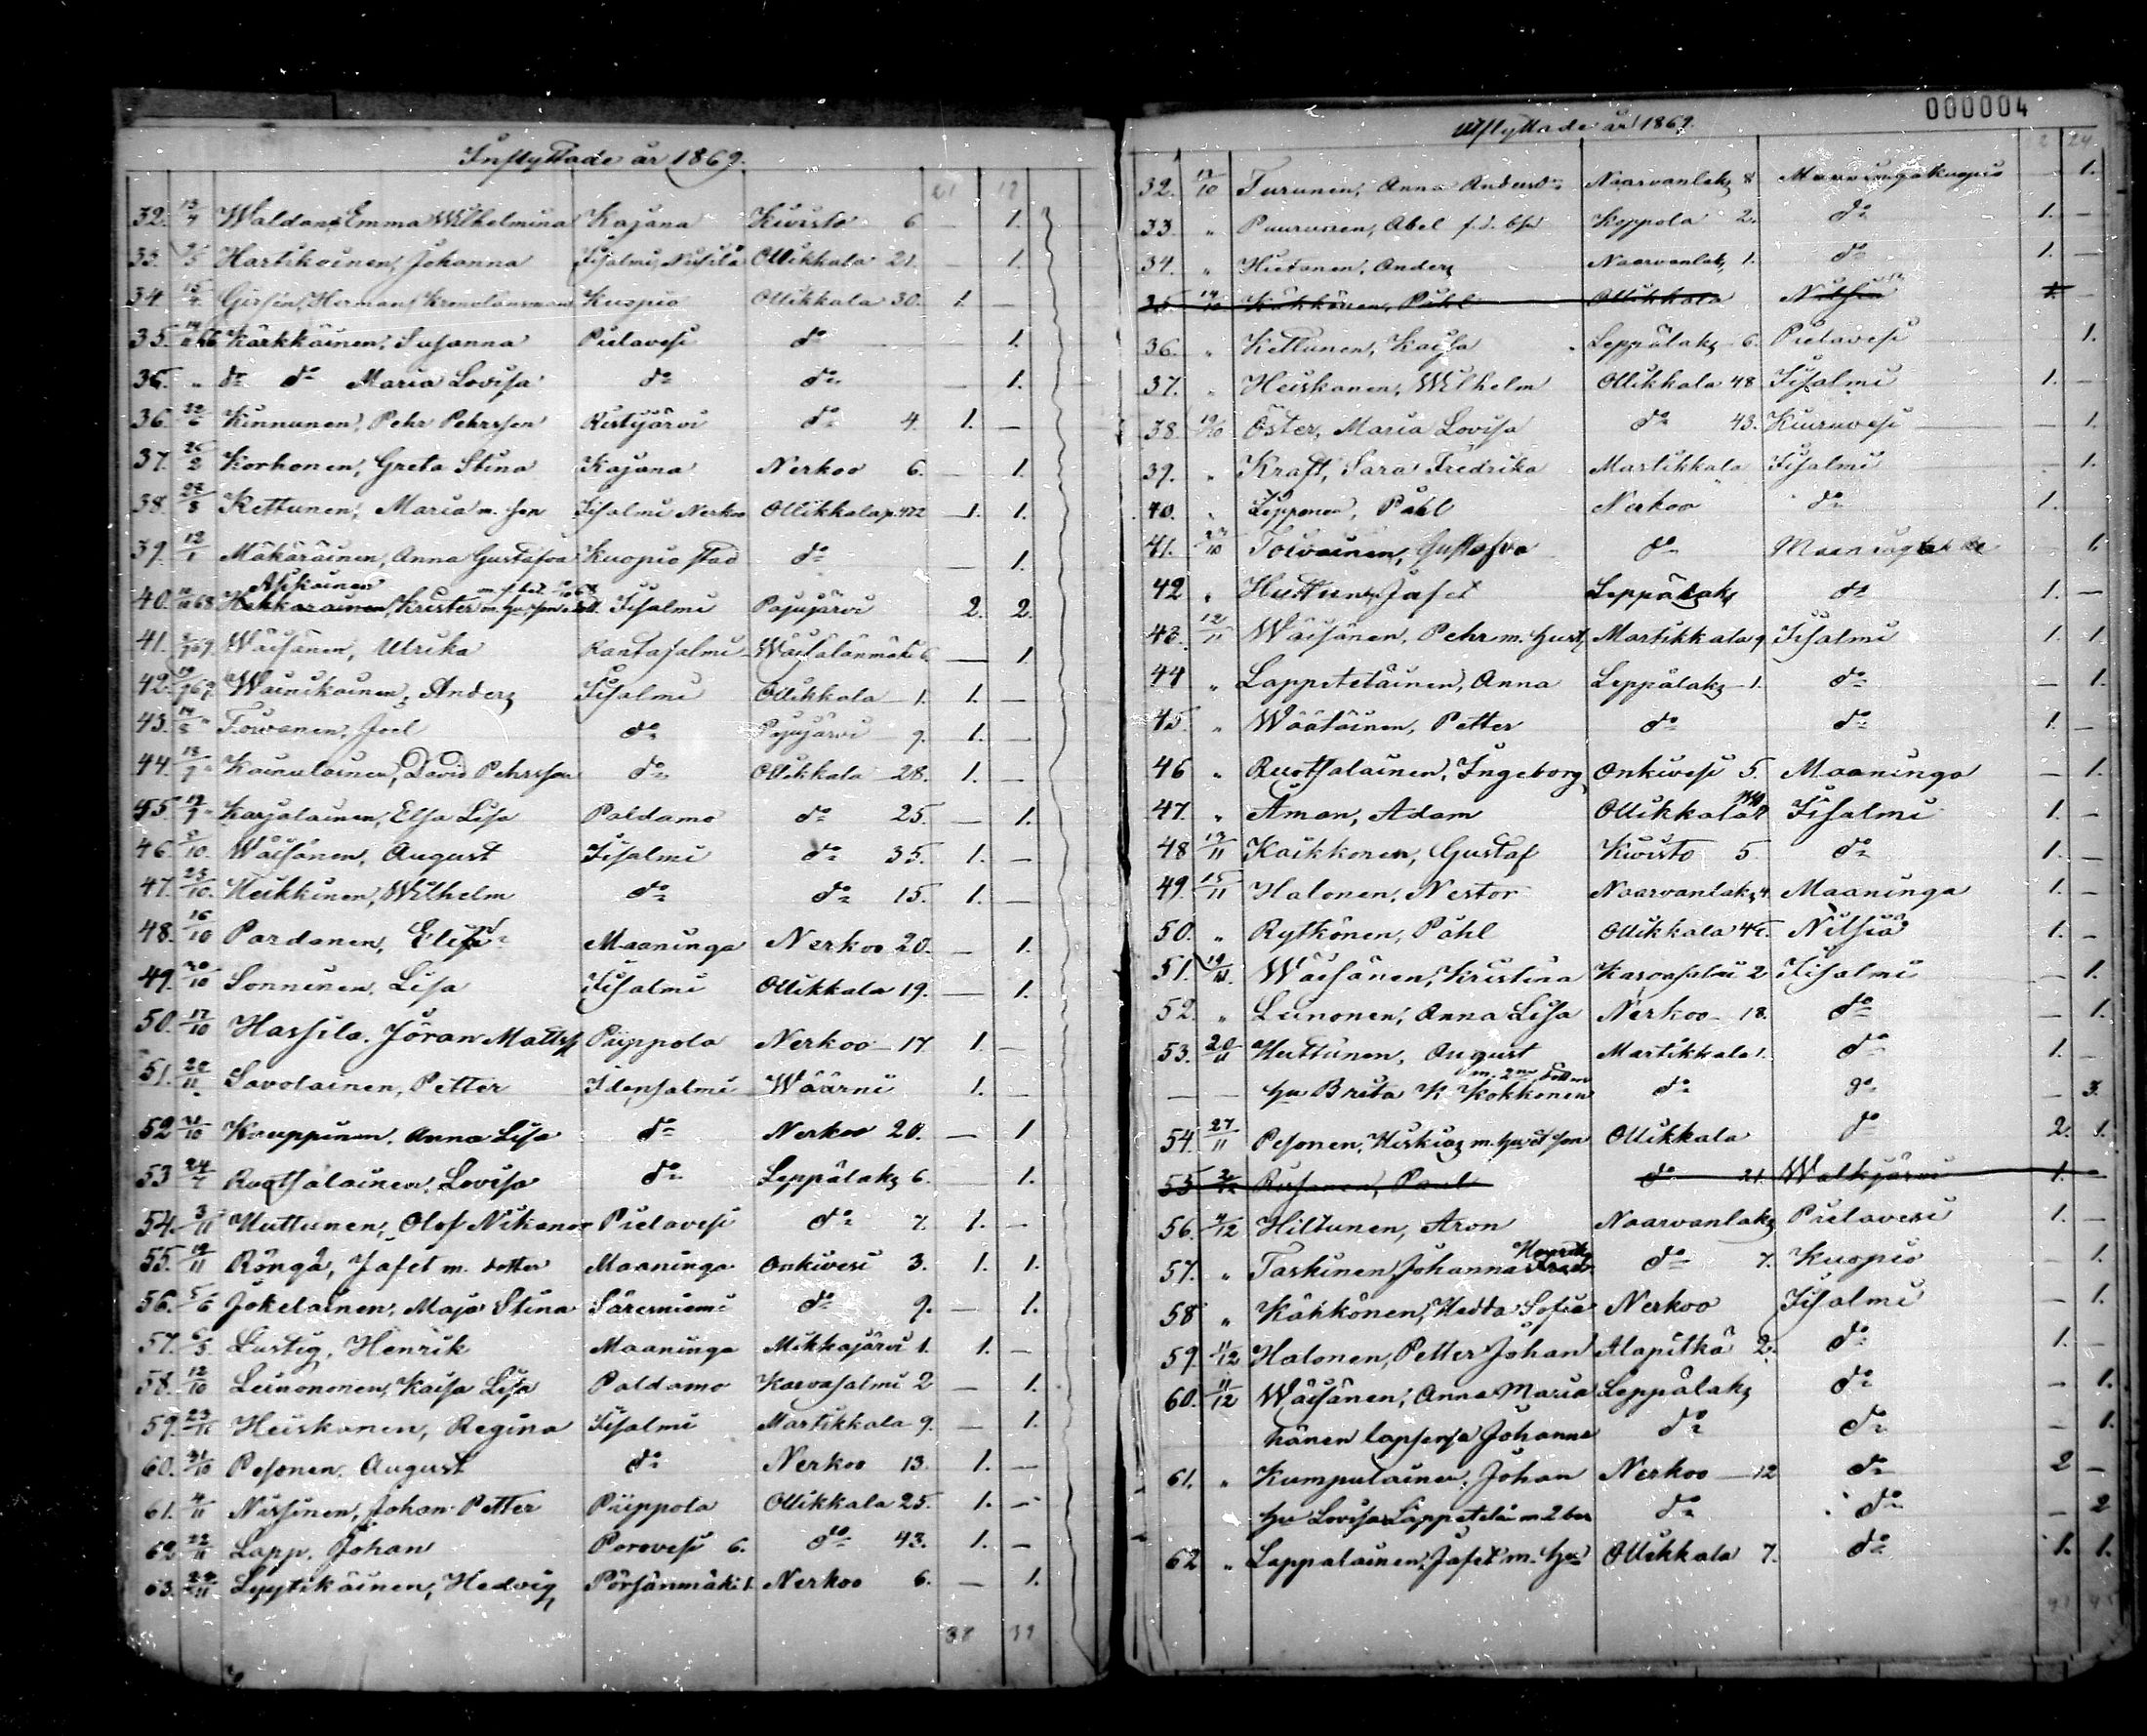 Inflyttade år 1869.
21 19
32. 13/4 Waldan, Emma Wilhelmina Kajana Kivisto 6 — 1.
33. /5 Hartikainen, Johanna Iisalmi, Ollikkala 21. — 1.
34. 15/4 Herman Kronolänsman Kuopio Ollikkala 30. 1. —
35. 14/11 66 Kärkkäinen, Susanna Pielavesi do 1.
36. „ do do Maria Lovisa do do — 1.
36. 22/6 Kinnunen, Pehr Pehrsson Ristijärvi do 4. 1. —
37. 26/2 Korhonen, Greta Stina Kajana Nerkoo 6. — 1.
38. 28/8 Kettunen, Maria m. son Iisalmi Nerkoo Ollikkala p. 472 1. 1.
39. 12/1 Mäkäräinen, Anna Gustafva Kuopio stad do — 1.
Asikainen
40. 68 Hakkarainen, Krister m. hu, son Iisalmi Pajujärvi 2. 2.
41. 69. Wäisänen, Ulrika Rantasalmi Wäisälänmäki 6. — 1.
42. 19/9 69 Wainikainen, Anders Iisalmi Ollikkala 1. 1. —
43. 14/8 „ Toivanen, Joel do Pajujärvi 9. 1. —
44. 18/9 „ Kainulainen, David Pehrsson do Ollikkala 28. 1. —
45. 19/9 „ Karjalainen, Elsa Lisa Paldamo do 25. — 1.
46. /10. Wäisänen, August Iisalmi do 35. 1. —
47. 25/10. Heikkinen, Wilhelm do do 15. 1. —
48. 16/10 Pardanen, Maaninga Nerkoo 20. — 1.
49. 20/10 Sonninen, Lisa Iisalmi Ollikkala 19. — 1.
50. 17/10 Hassila, Jöran Matts Piippola Nerkoo 17. 1. —
51. 22/11 Savolainen, Petter Idensalmi Wäärni 1. —
52 /10 Kauppinen, Anna Lisa do Nerkoo 20. — 1
53 24/ Ruotsalainen, Lovisa do Leppälaks 6. 1.
54. 3/11 Huttunen, Olof Nikanor Pielavesi do 7. 1. —
55. 19/11 Röngä, Jafet m. dotter Maaninga Onkivesi 3. 1. 1.
56. 5/6 Jokelainen, Maja Stina Säresniemi do 9. — 1.
57. 6/5. Lustig, Henrik Maaninga Mikkajärvi 1. 1. —
58. 12/10 Leinononen, Kaisa Lisa Paldamo Karvasalmi 2 — 1.
59. 23/ Heiskanen, Regina Iisalmi Martikkala 9. — 1.
60. 31/10 Pesonen, August do Nerkoo 13. 1. —
61. 4/11 Nissinen, Johan Petter Piippola Ollikkala 25. 1. —
62 22/11 Lapp, Johan Porovesi 6. do 43. 1. —
63. /11 Lyytikäinen, Hedvig Pörsänmäki 1. Nerkoo 6. — 1.
38 39
000004
Utflyttade år 1869.
2 24
32. 12/10 Turunen, Anna Naarvanlaks 8 Maaninga Kuopio 1.
33. „ Puurunen, Abel f.d. Koppola 2. do 1. —
34. „ Hietanen, Anders Naarvanlaks 1. do 1. —
35. 14/10 Kähkönen, Påhl Ollikkala Nilsiä 1. —
36. „ Kettunen, Kaisa Leppälaks 6. Pielavesi 1.
37. „ Heiskanen, Wilhelm Ollikkala 48 Iisalmi 1. —
38. 19/10 Öster, Maria Lovisa do 43. Kiuruvesi — 1.
39. „ Kraft, Sara Fredrika Martikkala Iisalmi 1.
40. „ Lepponen, Påhl Nerkoo do 1.
41. 27/10 Toivainen, Gustafva do 1.
42 „ Huttunen, Jafet Leppälaks do 1. —
43. 12/11 Wäisänen, Pehr m. hust Martikkala 9 Iisalmi 1. 1.
44 „ Lappeteläinen, Anna Leppälaks 1. do — 1.
45 „ Wäätäinen, Petter do do 1. —
46 „ Ruotsalainen, Ingeborg Onkivesi 5. Maaninga — 1.
47. „ Åman, Adam Ollikkala Iisalmi 1. —
48 13/11 Kaikkonen, Gustaf Kivisto 5. do 1. —
49. 15/11 Halonen, Nestor Naarvanlaks 4. Maaninga 1. —
50. „ Rytkönen, Påhl Ollikkala Nilsiä 1. —
51. 19/11. Wäisänen, Kristina Karvasalmi 2 Iisalmi — 1.
52. „ Leinonen, Anna Lisa Nerkoo 18. do — 1.
53. 20/11 Huttunen, August Martikkala 1. do 1. —
— — hu Brita K Kokkonen do do — 3.
54. 27/11 Pesonen, Hiskias m. hu et son Ollikkala do 2. 1.
55 Paul do 21. Walkjärvi 1. —
56. 4/12 Hiltunen, Aron Naarvanlaks Pielavesi 1. —
57. „ Taskinen, Johanna do 7. Kuopio — 1.
58 „ Kähkönen, Hedda Sofia Nerkoo Iisalmi — 1.
59. /12 Halonen, Petter Johan Alapitkä 2. do 1. —
60. 11/12 Wäisänen, Anna Maria Leppälaks do — 1.
hänen lapsensa Johanna do do — 1.
61. „ Kumpulainen, Johan Nerkoo 12 do 2 —
hu Lovisa Lappetelä m 2 bar do do — 2
62 „ Lappalainen, Jafet m. hu Ollikkala 7. do 1. 1.